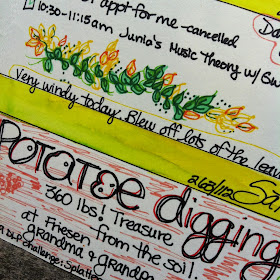 appt for me - cancelled
Da
10:30-11:15am Junia's Music Theory w/ Sw
Very windy today. Blew off lots of the leav
Sa
POTATOE digging
360 lbs! Treasure
from the soil.
at Friesen
grandma & grandpa
DLP Challenge: Splatte